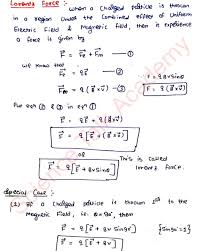 Lorentz Force :- When a charged particle is thrown
in a region under the combined effect of uniform
Electric field & Magnetic field, then it experience
a force is given by
F⃗ = F⃗e + F⃗m — ①
we know that
F⃗e = qE⃗ — ②
F⃗m = q(B⃗×v⃗) — ③
F = qBvsinθ
F⃗ = q(B⃗×v⃗)
Put eqⁿ ② & ③ in eqⁿ ①
F⃗ = qE⃗ + q(B⃗×v⃗)
F⃗ = q[E⃗ + (B⃗×v⃗)]
OR
F⃗ = q[E⃗ + Bvsinθ]
This is called
Lorentz force.
Special Case :-
(1) If a charged particle is thrown ⊥ to the
magnetic field, i.e. θ = 90°, then
F⃗ = q[E⃗ + Bvsin90°] {sin90° = 1}
F⃗ = q[E⃗ + Bv]
Academy